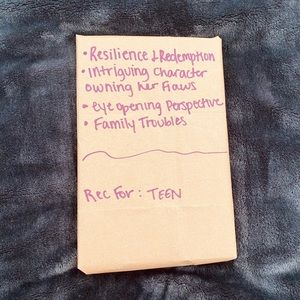 • Resilience & Redemption
• Intriguing Character
owning her Flaws
• eye opening Perspective
• Family Troubles
Rec For: TEEN